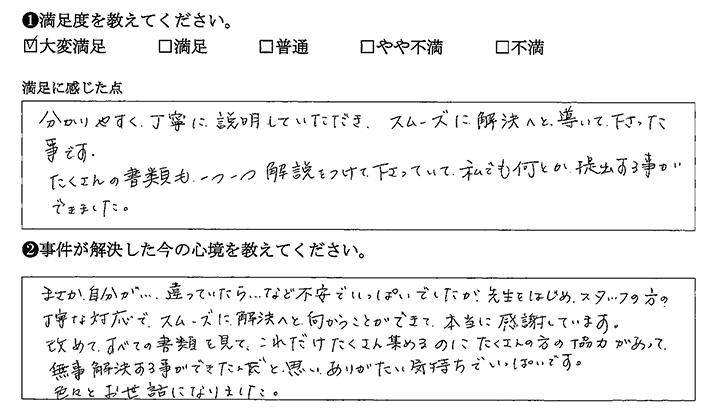 ❶満足度を教えてください。
☑大変満足 □満足 □普通 □やや不満 □不満
満足に感じた点
分かりやすく、丁寧に、説明していただき、スムーズに解決へと、導いて、下さった
事です。
たくさんの書類も、一つ一つ解説をつけて、下さっていて、私でも何とか、提出する事が
できました。
❷事件が解決した今の心境を教えてください。
まさか、自分が…、違っていたら…など不安でいっぱいでしたが、先生をはじめ、スタッフの方の
丁寧な対応で、スムーズに、解決へと、向かうことができて、本当に感謝しています。
改めて、すべての書類を見て、これだけたくさん集めるのにたくさんの方の協力があって、
無事解決する事ができたんだと、思い、ありがたい気持ちでいっぱいです。
色々とお世話になりました。